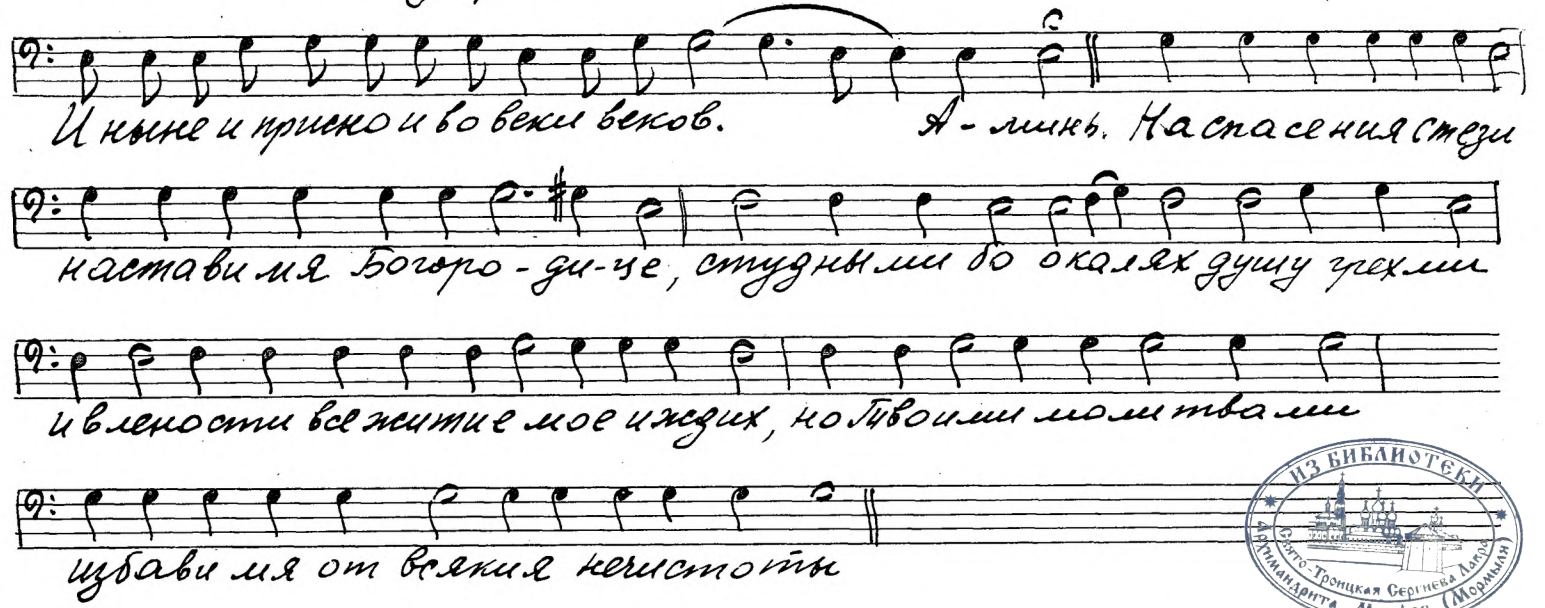 И ныне и присно и во веки веков. А - минь. На спасения стези
настави мя Богоро - ди - це, студными бо окалях душу грехми
и в лености все житие мое иждих, но Твоими молитвами
избави мя от всякия нечистоты
ИЗ БИБЛИОТЕКИ
Свято-Троицкая Сергиева Лавра
Архимандрита (Мормыля)